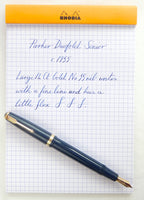 RHODIA
Parker Duofold Senior
c 1955
Large 14 ct Gold No 35 nib writes
with a fine line and has a
little flex.